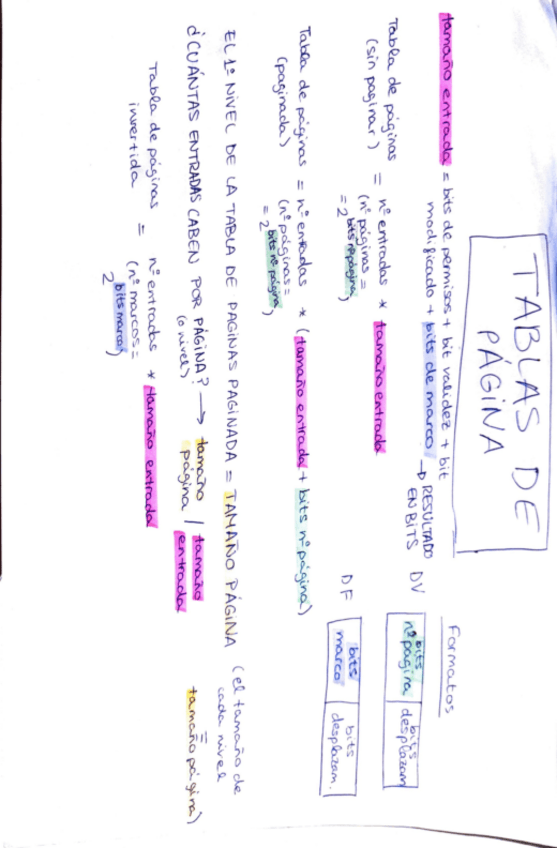 TABLAS DE
PÁGINA
tamaño entrada = bits de permisos + bit validez + bit
modificado + bits de marco → RESULTADO
EN BITS
Formatos
DV
bits nº pagina | bits desplazam
DF
bits marco | bits desplazam.
Tabla de páginas = nº entradas * tamaño entrada
(sin paginar) (nº páginas =
= 2 bits nº página)
Tabla de páginas = nº entradas * (tamaño entrada + bits nº página)
(paginada) (nº páginas =
= 2 bits nº página)
EL 1º NIVEL DE LA TABLA DE PAGINAS PAGINADA = TAMAÑO PÁGINA (el tamaño de
cada nivel
=
tamaño página)
¿CUÁNTAS ENTRADAS CABEN POR PÁGINA? → tamaño página / tamaño entrada
(o nivel)
Tabla de páginas = nº entradas * tamaño entrada
invertida (nº marcos =
2 bits marco)